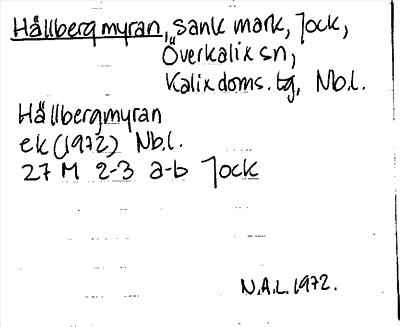 Hållbergmyran, sank mark, Jock,
Överkalix sn,
Kalix doms. tg, Nb.l.
Hållbergmyran
ek (1972) Nb.l.
27 M 2-3 a-b Jock
N.A.L. 1972.